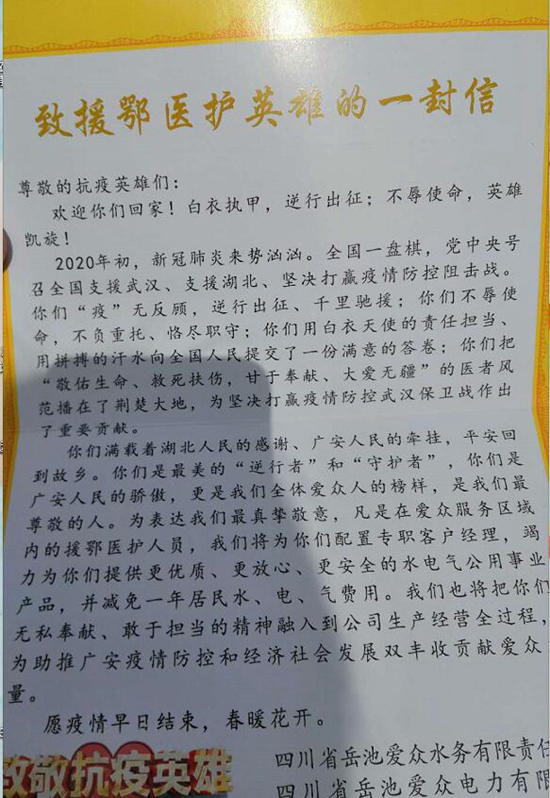 致援鄂医护英雄的一封信
尊敬的抗疫英雄们：
欢迎你们回家！白衣执甲，逆行出征；不辱使命，英雄
凯旋！
2020年初，新冠肺炎来势汹汹。全国一盘棋，党中央号
召全国支援武汉、支援湖北、坚决打赢疫情防控阻击战。
你们“疫”无反顾，逆行出征、千里驰援；你们不辱使
命，不负重托、恪尽职守；你们用白衣天使的责任担当、
用拼搏的汗水向全国人民提交了一份满意的答卷；你们把
“敬佑生命、救死扶伤，甘于奉献、大爱无疆”的医者风
范播在了荆楚大地，为坚决打赢疫情防控武汉保卫战作出
了重要贡献。
你们满载着湖北人民的感谢、广安人民的牵挂，平安回
到故乡。你们是最美的“逆行者”和“守护者”，你们是
广安人民的骄傲，更是我们全体爱众人的榜样，是我们最
尊敬的人。为表达我们最真挚敬意，凡是在爱众服务区域
内的援鄂医护人员，我们将为你们配置专职客户经理，竭
力为你们提供更优质、更放心、更安全的水电气公用事业
产品，并减免一年居民水、电、气费用。我们也将把你们
无私奉献、敢于担当的精神融入到公司生产经营全过程，
为助推广安疫情防控和经济社会发展双丰收贡献爱众
量。
愿疫情早日结束，春暖花开。
致敬抗疫英雄
四川省岳池爱众水务有限责任
四川省岳池爱众电力有限